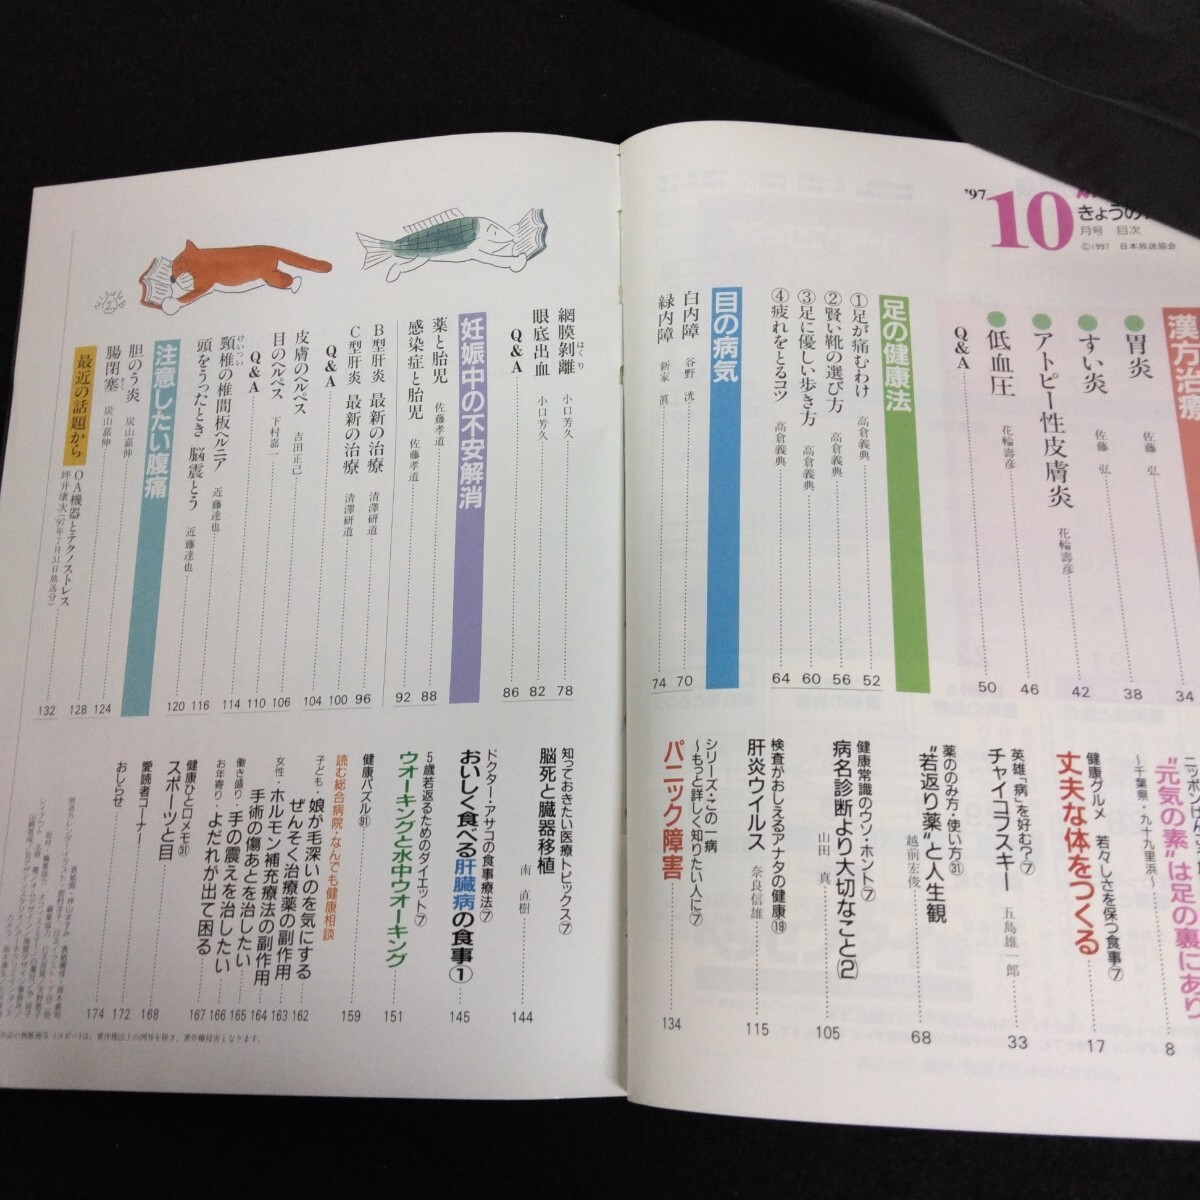 '97
10
月号 目次
©1997 日本放送協会
漢方治療
胃炎 佐藤 弘 34
すい炎 佐藤 弘 38
アトピー性皮膚炎 花輪壽彦 42
低血圧 花輪壽彦 46
Q&A 50
足の健康法
①足が痛むわけ 高倉義典 52
②賢い靴の選び方 高倉義典 56
③足に優しい歩き方 高倉義典 60
④疲れをとるコツ 高倉義典 64
目の病気
白内障 谷野 洸 70
緑内障 新家 眞 74
網膜剥離 小口芳久 78
はくり
眼底出血 小口芳久 82
Q&A 86
妊娠中の不安解消
薬と胎児 佐藤孝道 88
感染症と胎児 佐藤孝道 92
B型肝炎 最新の治療 清澤研道 96
C型肝炎 最新の治療 清澤研道 100
Q&A 104
皮膚のヘルペス 吉田正己 106
目のヘルペス 下村嘉一 110
Q&A 114
頸椎の椎間板ヘルニア 近藤達也 116
けいつい
頭をうったとき 脳震とう 近藤達也 120
注意したい腹痛
胆のう炎 炭山嘉伸 124
腸閉塞 炭山嘉伸 128
そく
最近の話題から
OA機器とテクノストレス 132
坪井康次('97年7月31日放送分)
"元気の素"は足の裏にあり
〜千葉県・九十九里浜〜
8
健康グルメ 若々しさを保つ食事⑦
丈夫な体をつくる
17
英雄「病」を好む?⑦
チャイコフスキー 五島雄一郎
33
薬ののみ方・使い方㉛
"若返り薬"と人生観 越前宏俊
68
健康常識のウソ・ホント⑦
病名診断より大切なこと(2) 山田 真
105
検査がおしえるアナタの健康⑲
肝炎ウイルス 奈良信雄
115
シリーズ・この一病
〜もっと詳しく知りたい人に⑦
パニック障害
134
知っておきたい医療トピックス⑦
脳死と臓器移植 南 直樹
144
ドクター・アサコの食事療法⑦
おいしく食べる肝臓病の食事①
145
5歳若返るためのダイエット⑦
ウオーキングと水中ウオーキング
151
健康パズル㉛
159
読む総合病院・なんでも健康相談
子ども・娘が毛深いのを気にする 162
ぜんそく治療薬の副作用 163
女性・ホルモン補充療法の副作用 164
手術の傷あとを治したい 165
働き盛り・手の震えを治したい 166
お年寄り・よだれが出て困る 167
健康ひと口メモ㉛
スポーツと目
168
愛読者コーナー 172
おしらせ 174